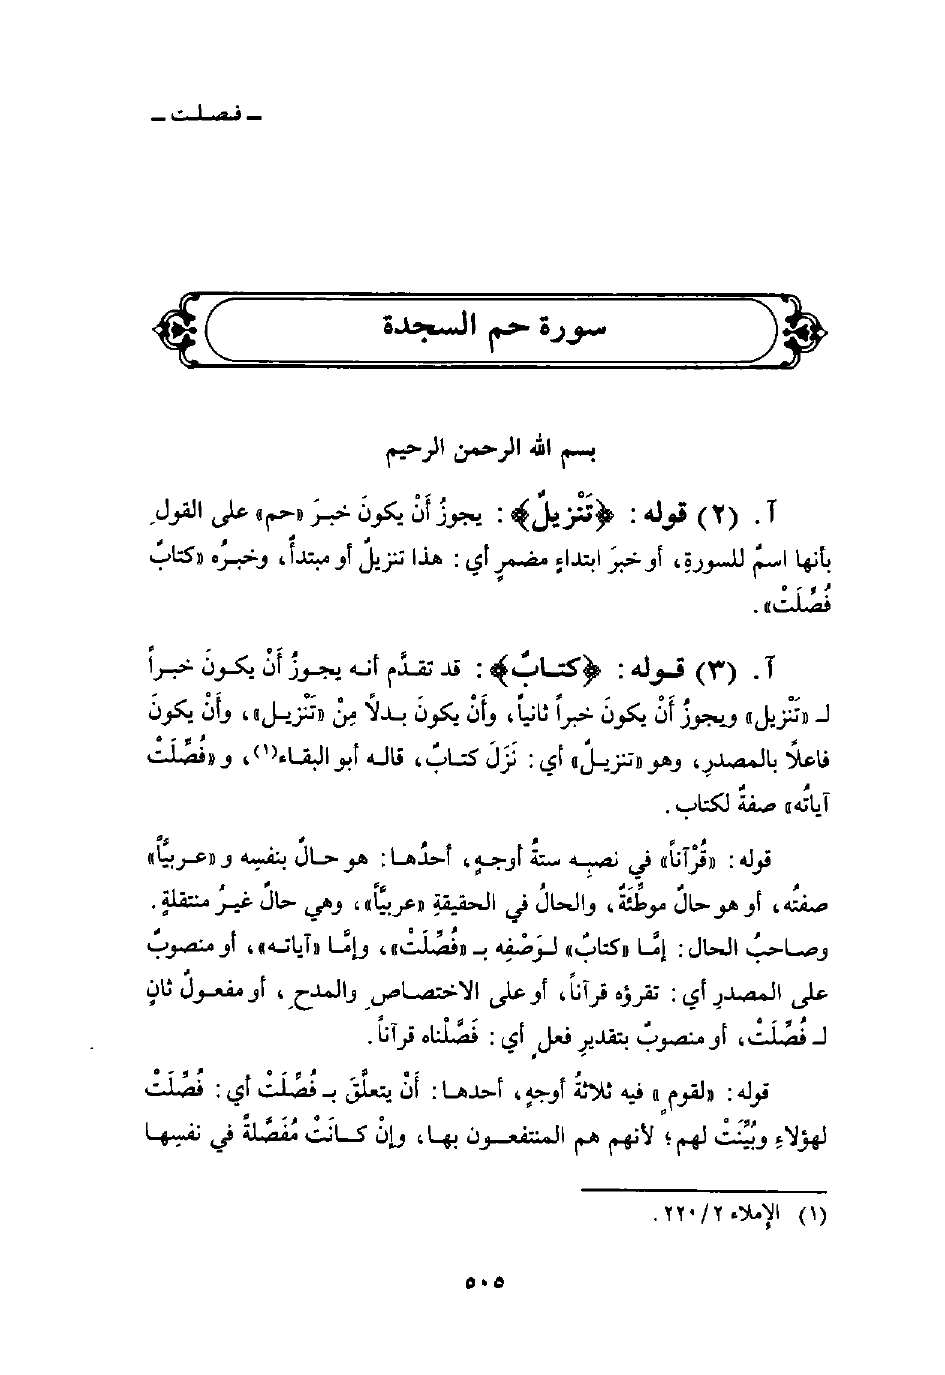 ـ فصلت ـ
سورة حم السجدة
بسم الله الرحمن الرحيم
آ. (٢) قوله: ﴿تَنْزيلٌ﴾: يجوزُ أَنْ يكونَ خبرَ «حم» على القولِ
بأنها اسمٌ للسورةِ، أو خبرَ ابتداءٍ مضمرٍ أي: هذا تنزيلٌ أو مبتدأٌ، وخبرُه «كتابٌ
فُصِّلَتْ».
آ. (٣) قوله: ﴿كتابٌ﴾: قد تقدَّم أنه يجوزُ أَنْ يكونَ خبراً
لـ «تَنْزيل» ويجوزُ أَنْ يكونَ خبراً ثانياً، وأَنْ يكونَ بدلاً مِنْ «تَنْزيل»، وأَنْ يكونَ
فاعلاً بالمصدرِ، وهو «تنزيلٌ» أي: نَزَلَ كتابٌ، قاله أبو البقاء(١)، و «فُصِّلَتْ
آياتُه» صفةٌ لكتاب.
قوله: «قُرْآناً» في نصبِه ستةُ أوجهٍ، أحدُها: هو حالٌ بنفسِه و «عربيَّاً»
صفتُه، أو هو حالٌ موطِّئَةٌ، والحالُ في الحقيقةِ «عربيَّاً»، وهي حالٌ غيرُ منتقلةٍ.
وصاحبُ الحال: إمَّا «كتابٌ» لوَصْفِه بـ «فُصِّلَتْ»، وإمَّا «آياته»، أو منصوبٌ
على المصدرِ أي: تقرؤه قرآناً، أو على الاختصاصِ والمدحِ، أو مفعولٌ ثانٍ
لـ فُصِّلَتْ، أو منصوبٌ بتقديرِ فعلٍ أي: فَصَّلْناه قرآناً.
قوله: «لقومٍ» فيه ثلاثةُ أوجهٍ، أحدها: أَنْ يتعلَّقَ بـ فُصِّلَتْ أي: فُصِّلَتْ
لهؤلاءِ وبُيِّنَتْ لهم؛ لأنهم هم المنتفعون بها، وإنْ كانَتْ مُفَصَّلةً في نفسِها
(١) الإِملاء ٢/ ٢٢٠.
٥٠٥